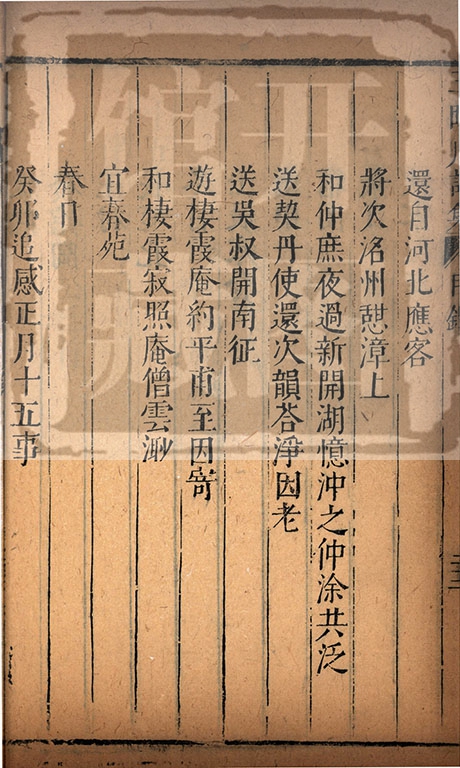 還自河北應客
將次洺州憇漳上
和仲庶夜過新開湖憶沖之仲涂共泛
送契丹使還次韻荅淨因老
送吳叔開南征
遊棲霞庵約平甫至因寄
和棲霞寂照庵僧雲渺
宜春苑
春日
癸卯追感正月十五事